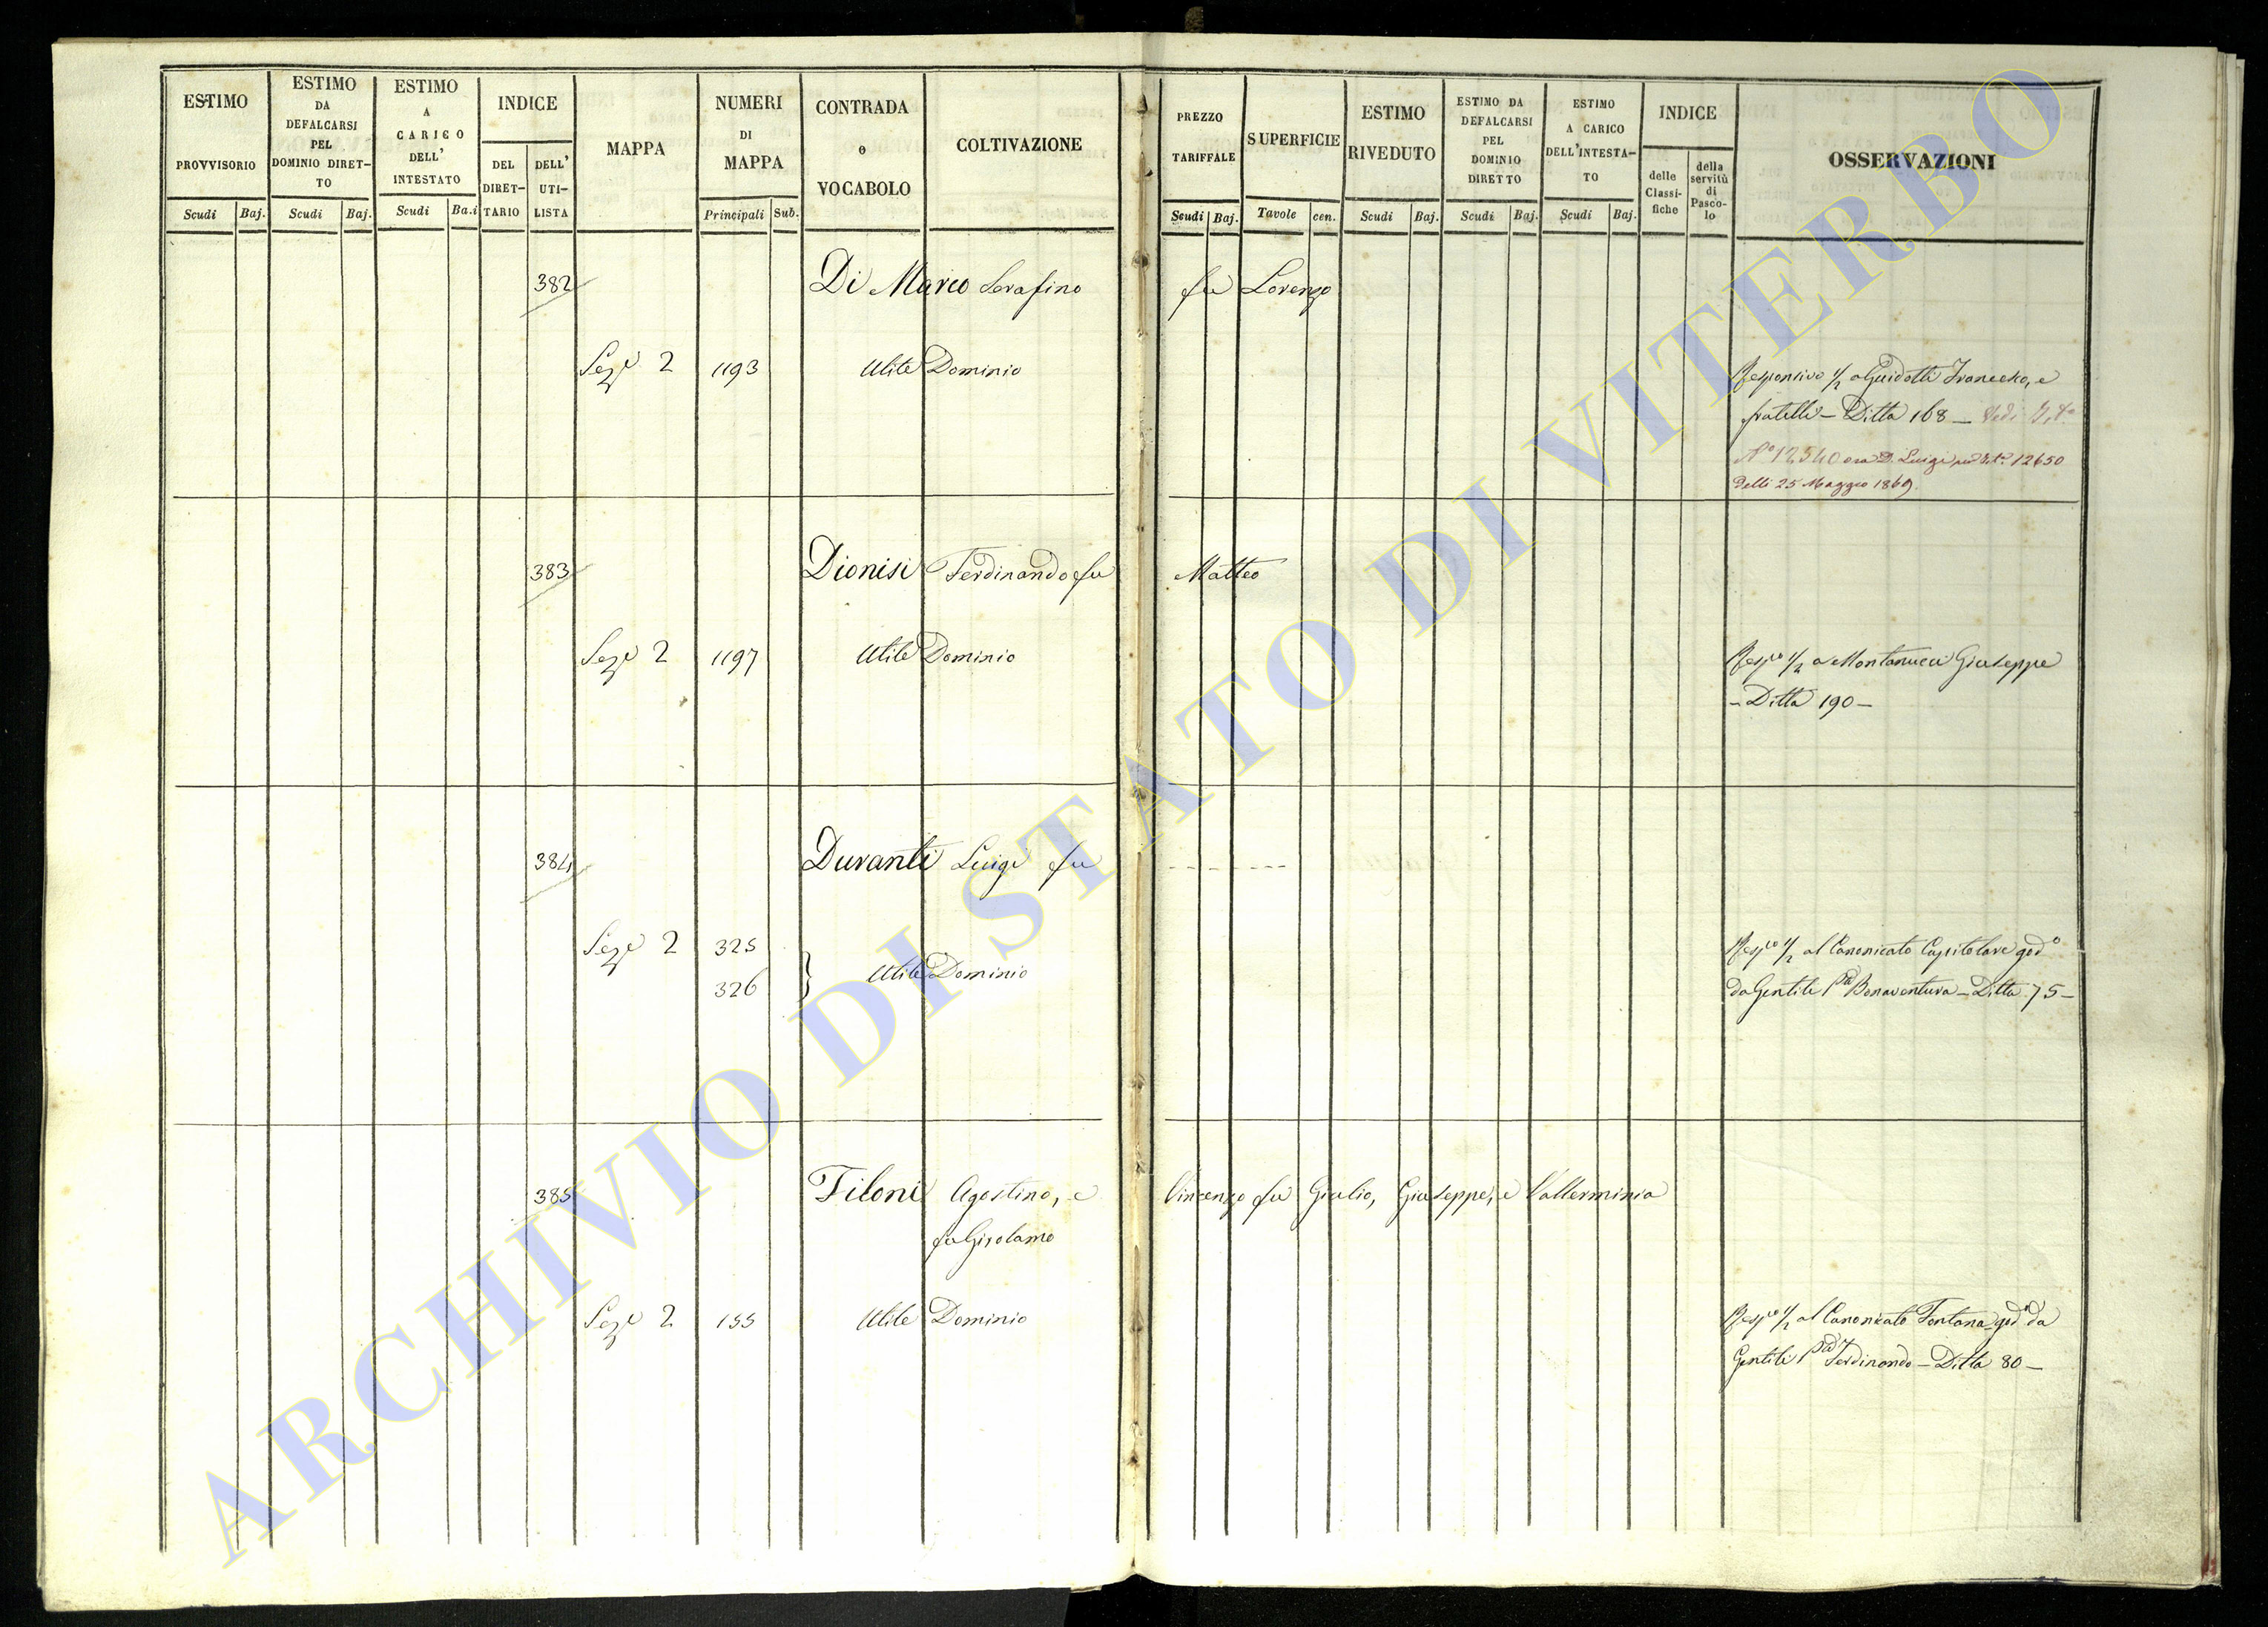 ESTIMO
PROVVISORIO
Scudi Baj.
ESTIMO
DA
DEFALCARSI
PEL
DOMINIO DIRET-
TO
Scudi Baj.
ESTIMO
A
CARICO
DELL'
INTESTATO
Scudi Ba.i
INDICE
DEL
DIRET-
TARIO
DELL'
UTI-
LISTA
MAPPA
NUMERI
DI
MAPPA
Principali Sub.
CONTRADA
o
VOCABOLO
COLTIVAZIONE
PREZZO
TARIFFALE
Scudi Baj.
SUPERFICIE
Tavole cen.
ESTIMO
RIVEDUTO
Scudi Baj.
ESTIMO DA
DEFALCARSI
PEL
DOMINIO
DIRETTO
Scudi Baj.
ESTIMO
A CARICO
DELL'INTESTA-
TO
Scudi Baj.
INDICE
delle
Classi-
fiche
della
servitù
di
Pasco-
lo
OSSERVAZIONI
382 Di Marco Serafino fu Lorenzo
Seze 2 1193 Utile Dominio Responsivo 1/2 a Guidotti Francesco, e
fratelli - Ditta 168 - Vedi
No 12540 ora D. Luigi 12650
Delli 25 Maggio 1869.
383 Dionisi Ferdinando fu Matteo
Seze 2 1197 Utile Dominio Respvo 1/2 a Montanucci Giuseppe
- Ditta 190 -
384 Duranti Luigi fu - - - - - -
Seze 2 325 Respvo 1/2 al Canonicato Capitolare godo
326 } Utile Dominio da Gentili Bonaventura - Ditta 75 -
385 Filoni Agostino, e Vincenzo fu Giulio, Giuseppe, e Vallerminia
fu Girolamo
Seze 2 155 Utile Dominio Respvo 1/2 al Canonicato Fontana god da
Gentili Ferdinando - Ditta 80 -
ARCHIVIO DI STATO DI VITERBO